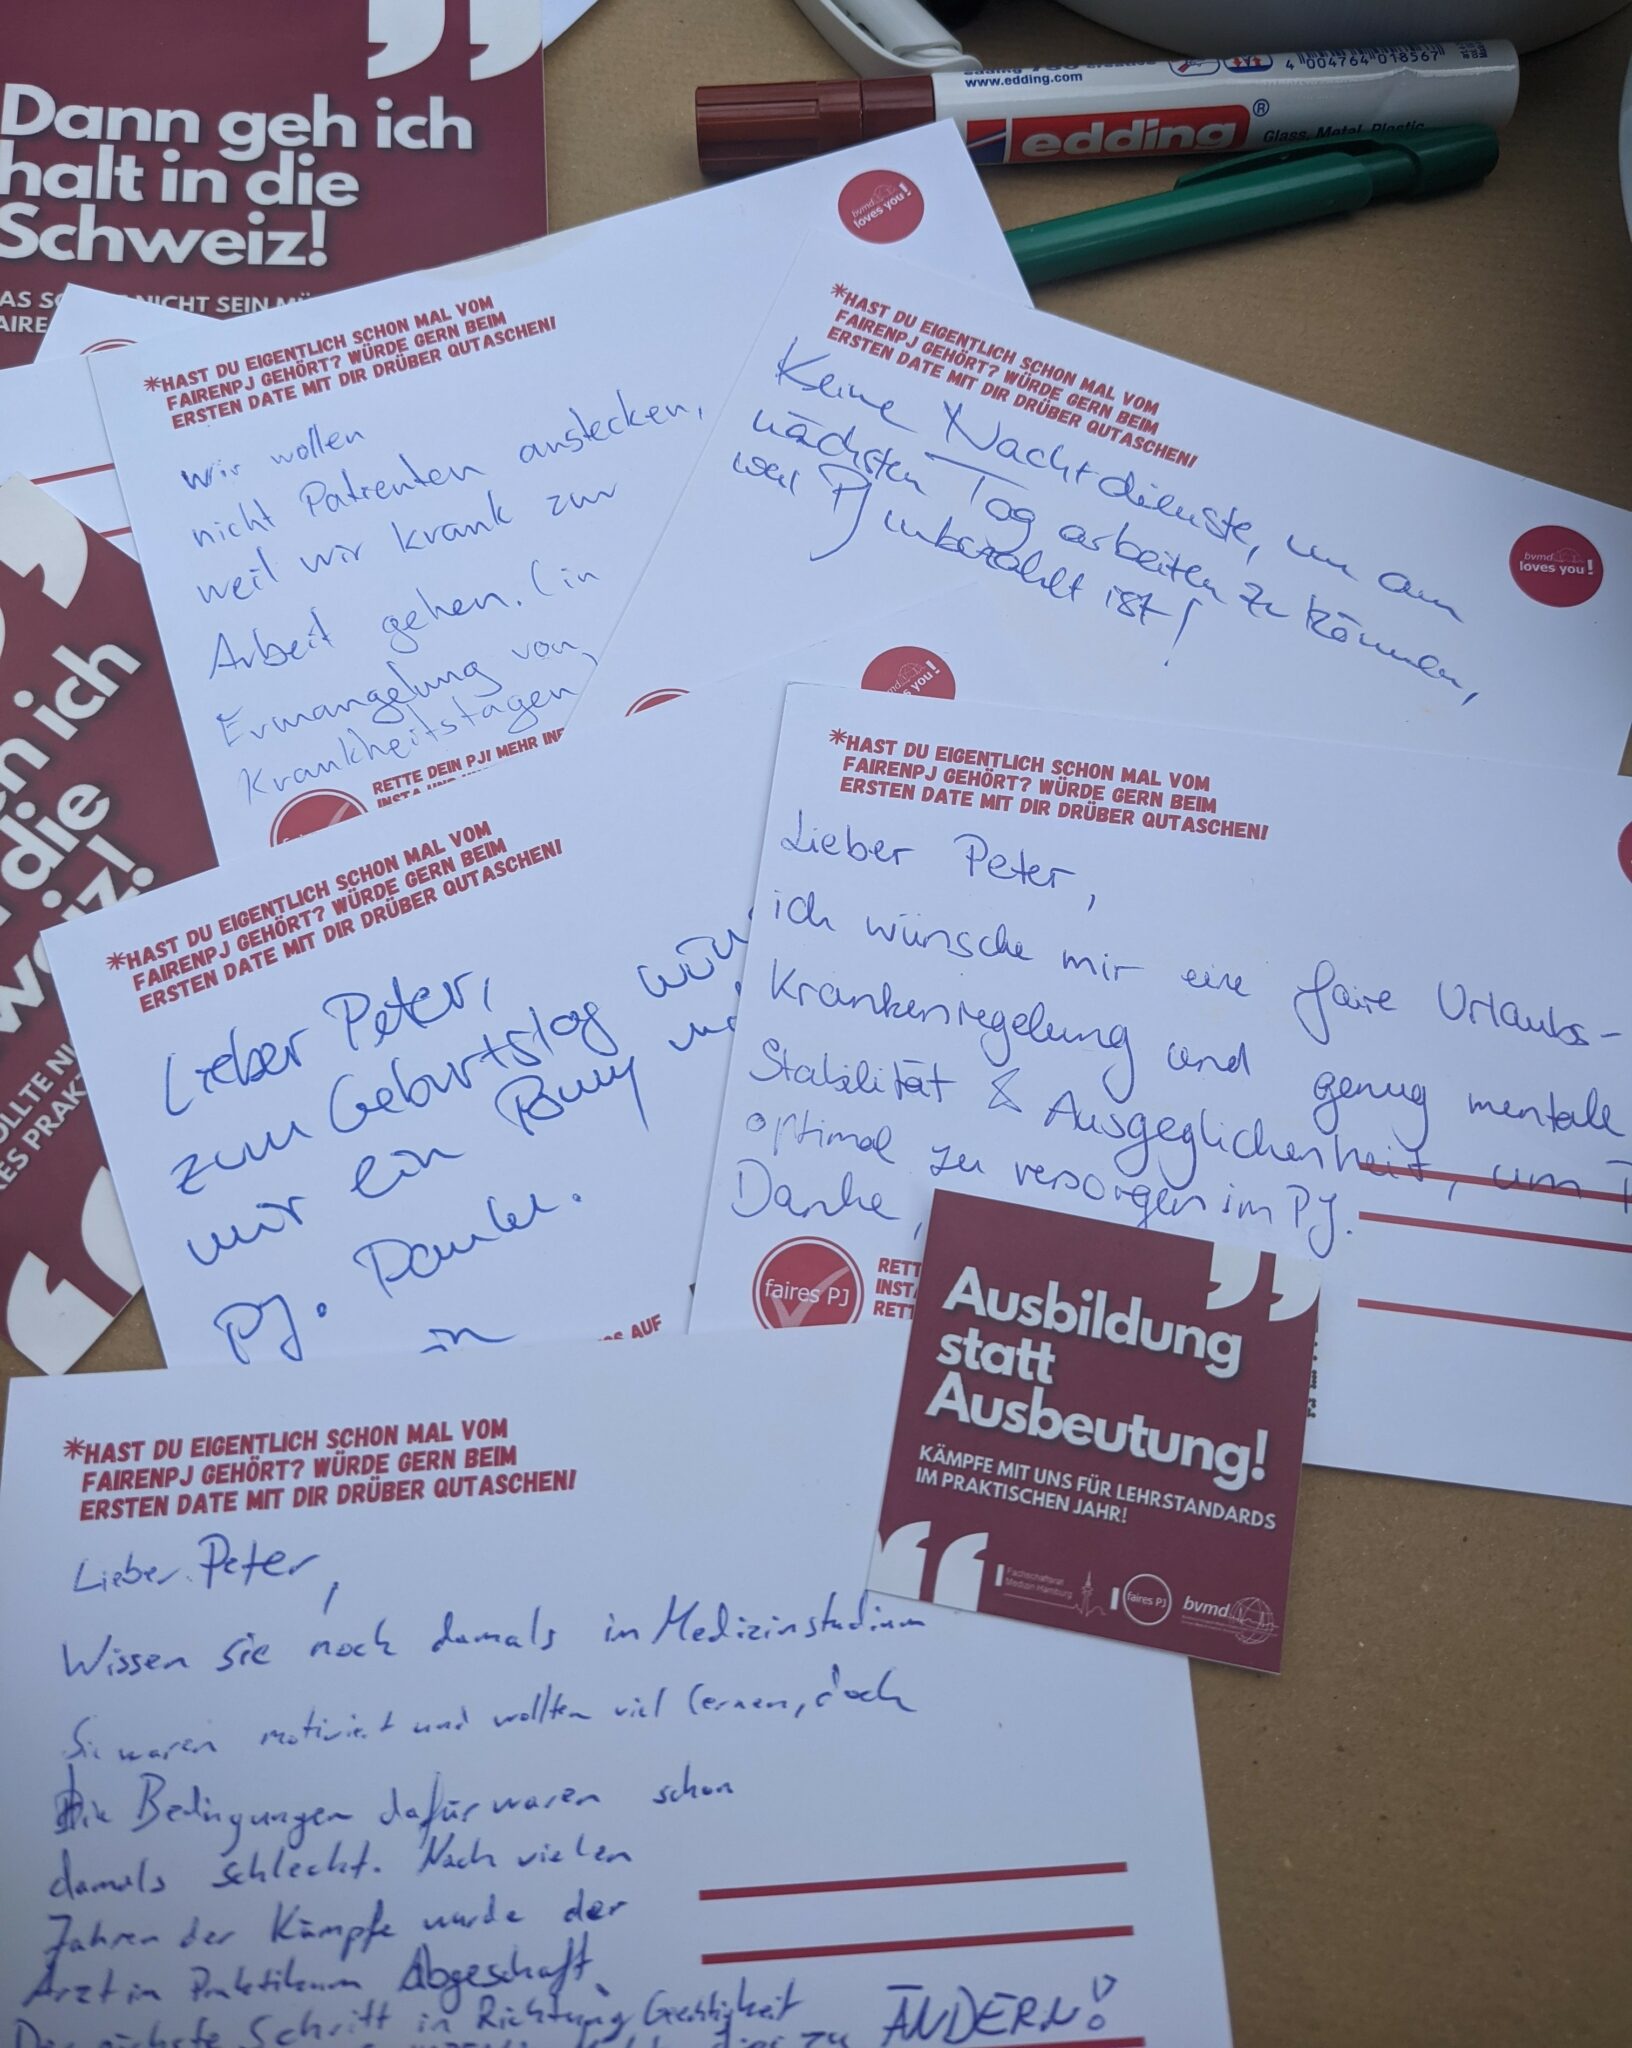 Dann geh ich
halt in die
Schweiz!
NICHT SEIN
edding
www.edding.com
4 004764 018567
edding®
Glass, Metal, Plastic
bvmd
loves you!
*HAST DU EIGENTLICH SCHON MAL VOM
FAIRENPJ GEHÖRT? WÜRDE GERN BEIM
ERSTEN DATE MIT DIR DRÜBER QUTASCHEN!
wir wollen
nicht Patienten anstecken,
weil wir krank zur
Arbeit gehen. (in
Ermangelung von
Krankheitstagen
RETTE DEIN PJ! MEHR
*HAST DU EIGENTLICH SCHON MAL VOM
FAIRENPJ GEHÖRT? WÜRDE GERN BEIM
ERSTEN DATE MIT DIR DRÜBER QUTASCHEN!
Keine Nachtdienste, um am
nächsten Tag arbeiten zu können,
weil PJ unbezahlt ist!
bvmd
loves you!
you!
ich
die
*HAST DU EIGENTLICH SCHON MAL VOM
FAIRENPJ GEHÖRT? WÜRDE GERN BEIM
ERSTEN DATE MIT DIR DRÜBER QUTASCHEN!
Lieber Peter,
zum Geburtstag
mir ein
PJ. Danke.
in
AUF
*HAST DU EIGENTLICH SCHON MAL VOM
FAIRENPJ GEHÖRT? WÜRDE GERN BEIM
ERSTEN DATE MIT DIR DRÜBER QUTASCHEN!
Lieber Peter,
ich wünsche mir eine faire Urlaubs-
Krankenregelung und genug mentale
Stabilität & Ausgeglichenheit, um
optimal zu versorgen im PJ.
Danke,
faires PJ
Ausbildung
statt
Ausbeutung!
KÄMPFE MIT UNS FÜR LEHRSTANDARDS
IM PRAKTISCHEN JAHR!
Fachschaftsrat
Medizin Hamburg
faires PJ
bvmd
*HAST DU EIGENTLICH SCHON MAL VOM
FAIRENPJ GEHÖRT? WÜRDE GERN BEIM
ERSTEN DATE MIT DIR DRÜBER QUTASCHEN!
Lieber Peter,
Wissen sie noch damals im Medizinstudium
Sie waren motiviert und wollten viel lernen, doch
Die Bedingungen dafür waren schon
damals schlecht. Nach vielen
Jahren der Kämpfe wurde der
Arzt im Praktikum Abgeschaft
Der nächste Schritt in Richtung
zu ÄNDERN!